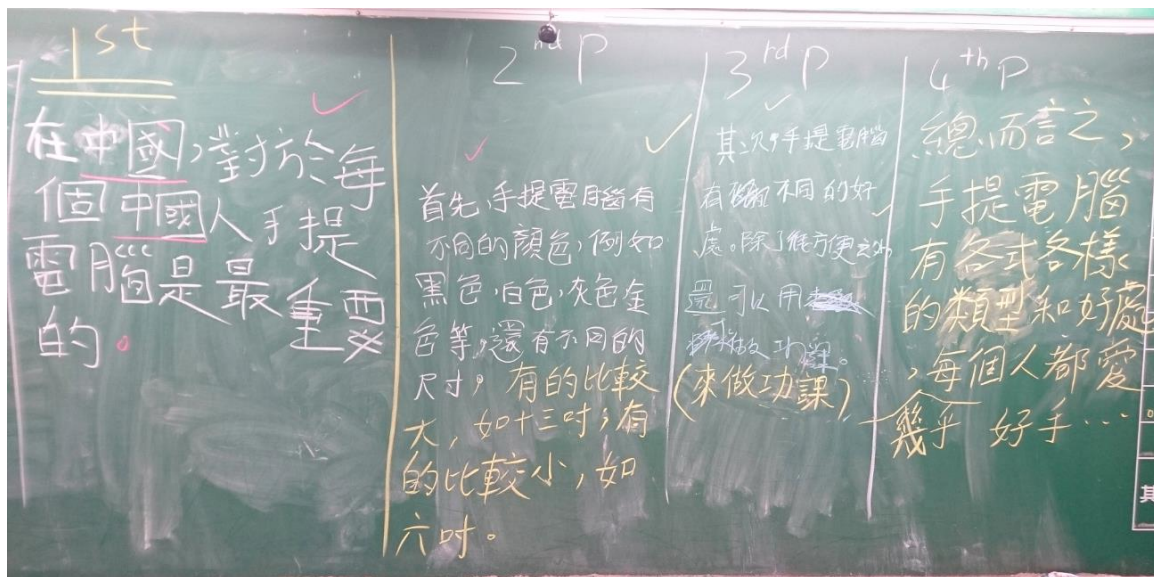 1st
在中國,對於每
個中國人手提
電腦是最重要
的。
2nd P
首先,手提電腦有
不同的顏色,例如
黑色,白色,灰色金
色等。還有不同的
尺寸。有的比較
大,如十三吋;有
的比較小,如
六吋。
3rd P
其次,手提電腦
有不同的好
處。除了能方便之外
還可以用
來做功課。
(來做功課)
4th P
總而言之,
手提電腦
有各式各樣
的類型和好處
,每個人都愛
幾乎 好手...。
其